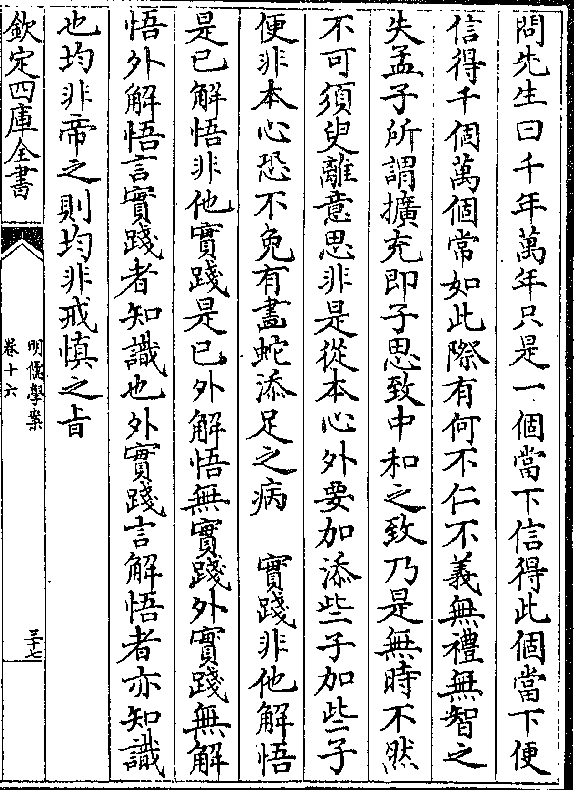 問先生曰千年萬年只是一個當下信得此個當下便
信得千個萬個常如此際有何不仁不義無禮無智之
失孟子所謂擴充即子思致中和之致乃是無時不然
不可須臾離意思非是從本心外要加添些子加些子
便非本心恐不免有畫蛇添足之病　實踐非他解悟
是已解悟非他實踐是已外解悟無實踐外實踐無解
悟外解悟言實踐者知識也外實踐言解悟者亦知識
也均非帝之則均非戒慎之旨
欽定四庫全書
明儒學案
卷十六
三十七